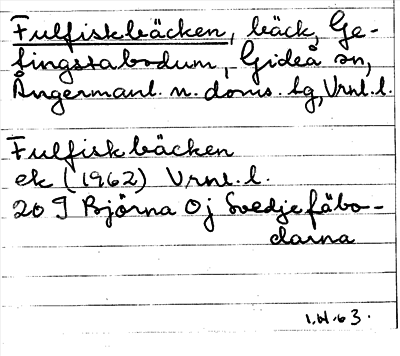 Fulfiskbäcken, bäck, Ge-
fingstabodum, Gideå sn,
Ångermanl. n. doms. lg, Vrnl. l.
Fulfiskbäcken
ek (1962) Vrnl. l.
20 J Björna 0 j Svedjefäbo-
darna
1.H.63.